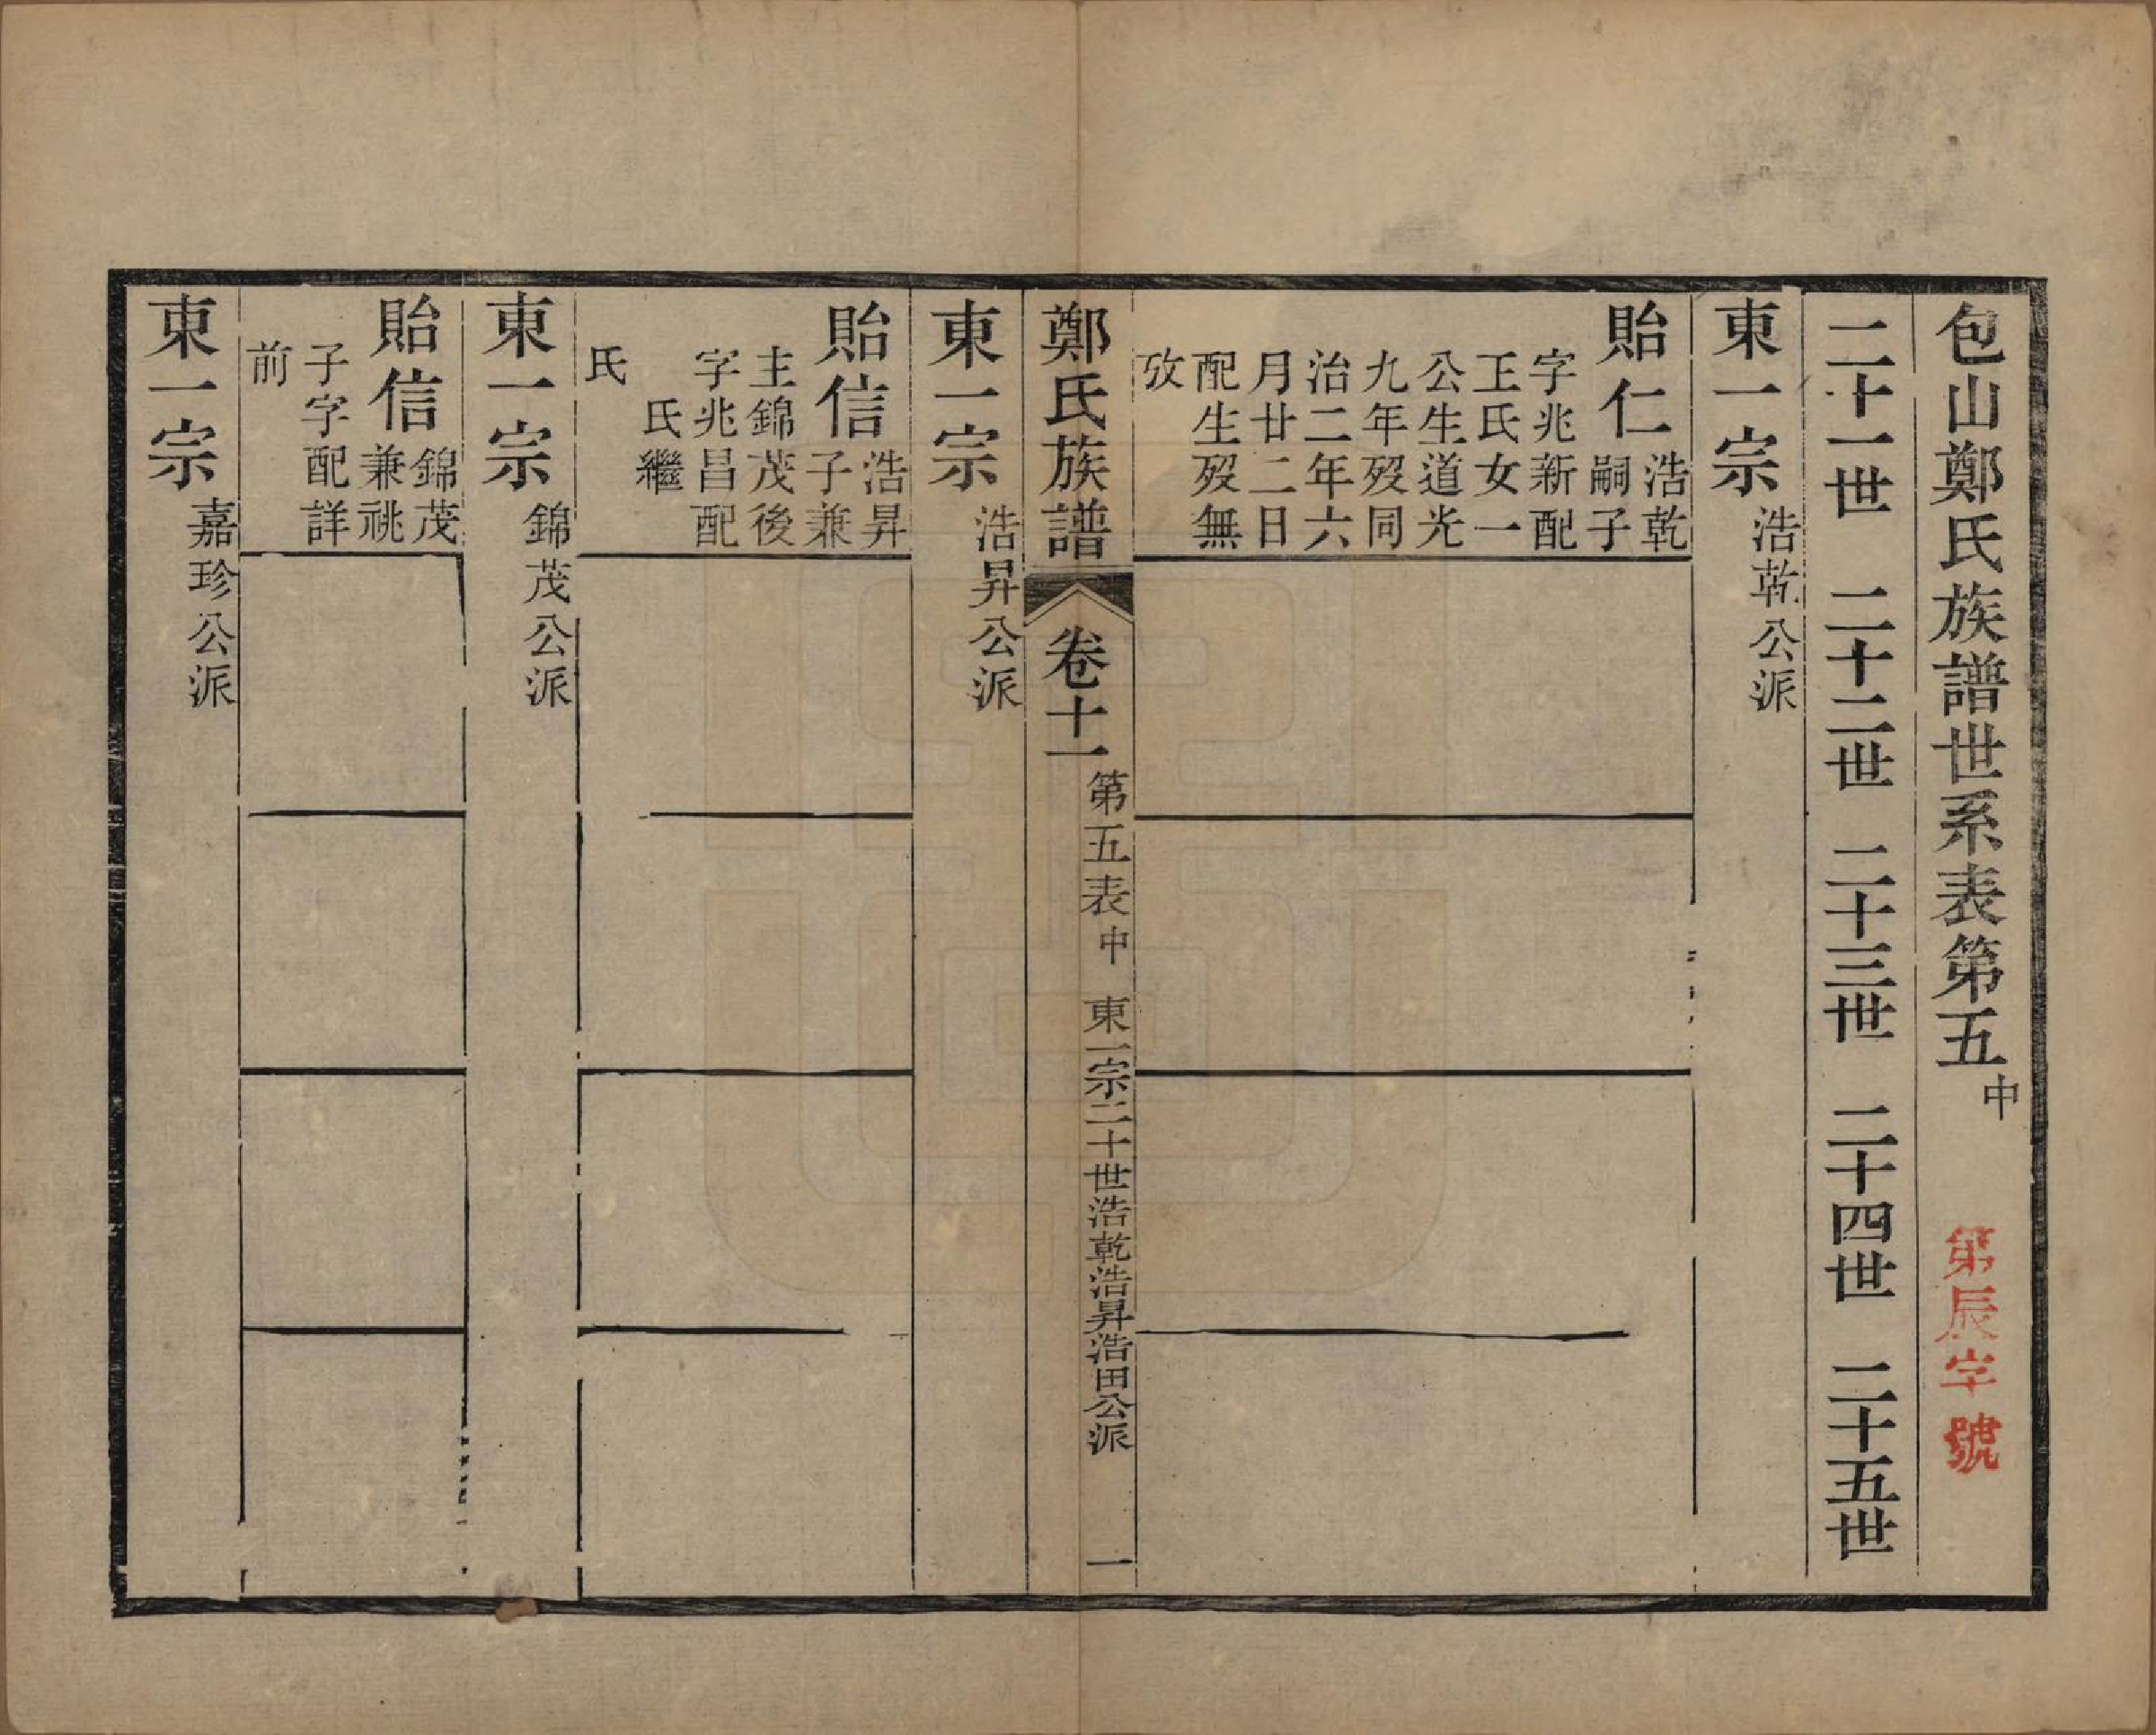 包山鄭氏族譜世系表第五中
第辰字號
二十一世 二十二世 二十三世 二十四世 二十五世
東一宗浩乾公派
貽仁浩乾
嗣子
字兆新配
王氏女一
公生道光
九年歿同
治二年六
月廿二日
配生歿無
攷
鄭氏族譜 卷十一 第五表中 東一宗二十世浩乾浩昇浩田公派 一
東一宗浩昇公派
貽信浩昇
子兼
主錦茂後
字兆昌配
氏繼
氏
東一宗錦茂公派
貽信錦茂
兼祧
子字配詳
前
東一宗嘉珍公派